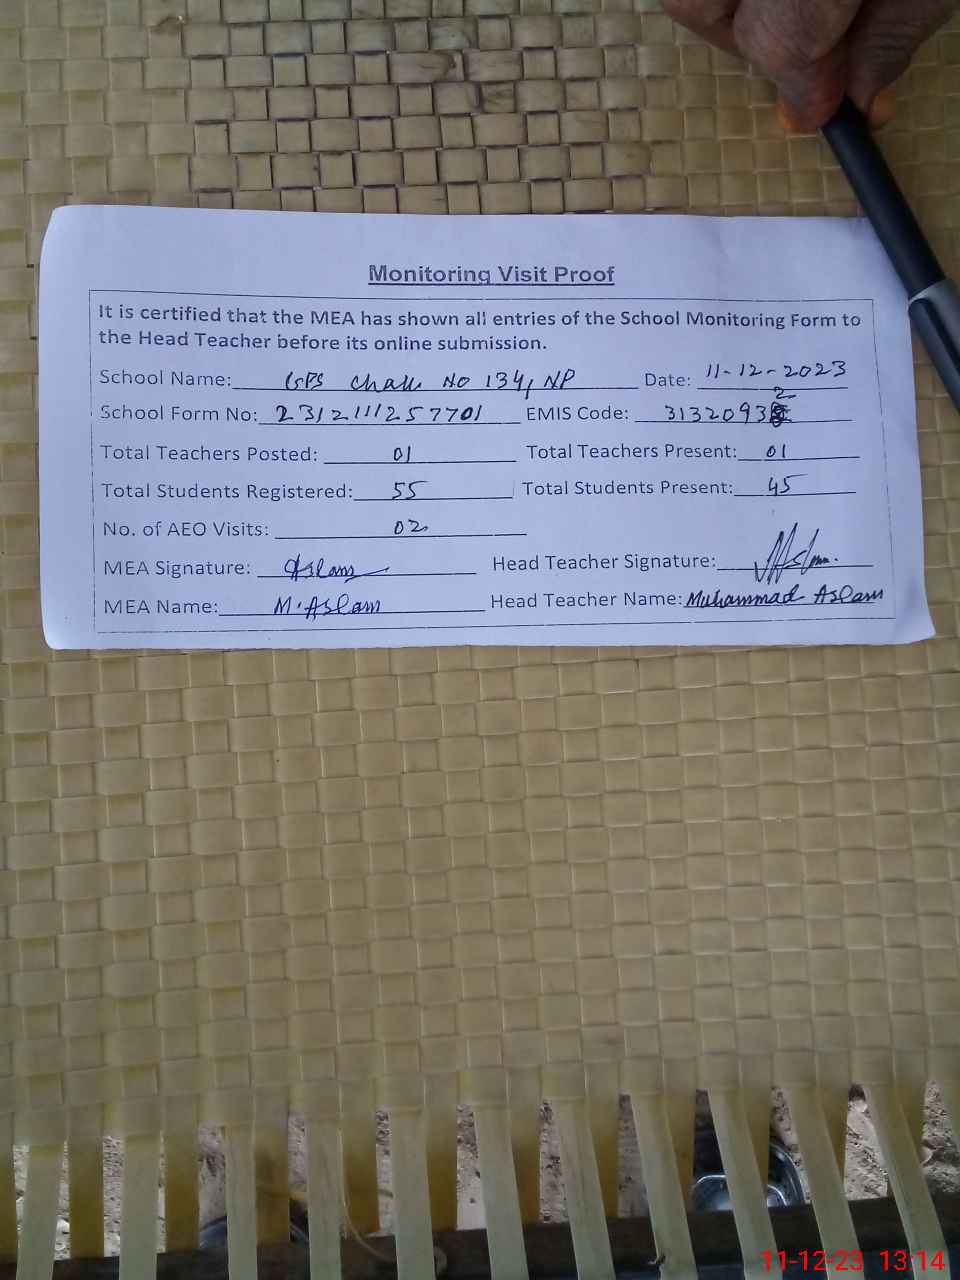 Monitoring Visit Proof
It is certified that the MEA has shown all entries of the School Monitoring Form to
the Head Teacher before its online submission.
School Name: GPS Chak No 134, NP Date: 11-12-2023
School Form No: 2312111257701 EMIS Code: 31320932
Total Teachers Posted: 01 Total Teachers Present: 01
Total Students Registered: 55 Total Students Present: 45
No. of AEO Visits: 02
MEA Signature: Aslam Head Teacher Signature:
MEA Name: M. Aslam Head Teacher Name: Muhammad Aslam
11-12-23 13:14